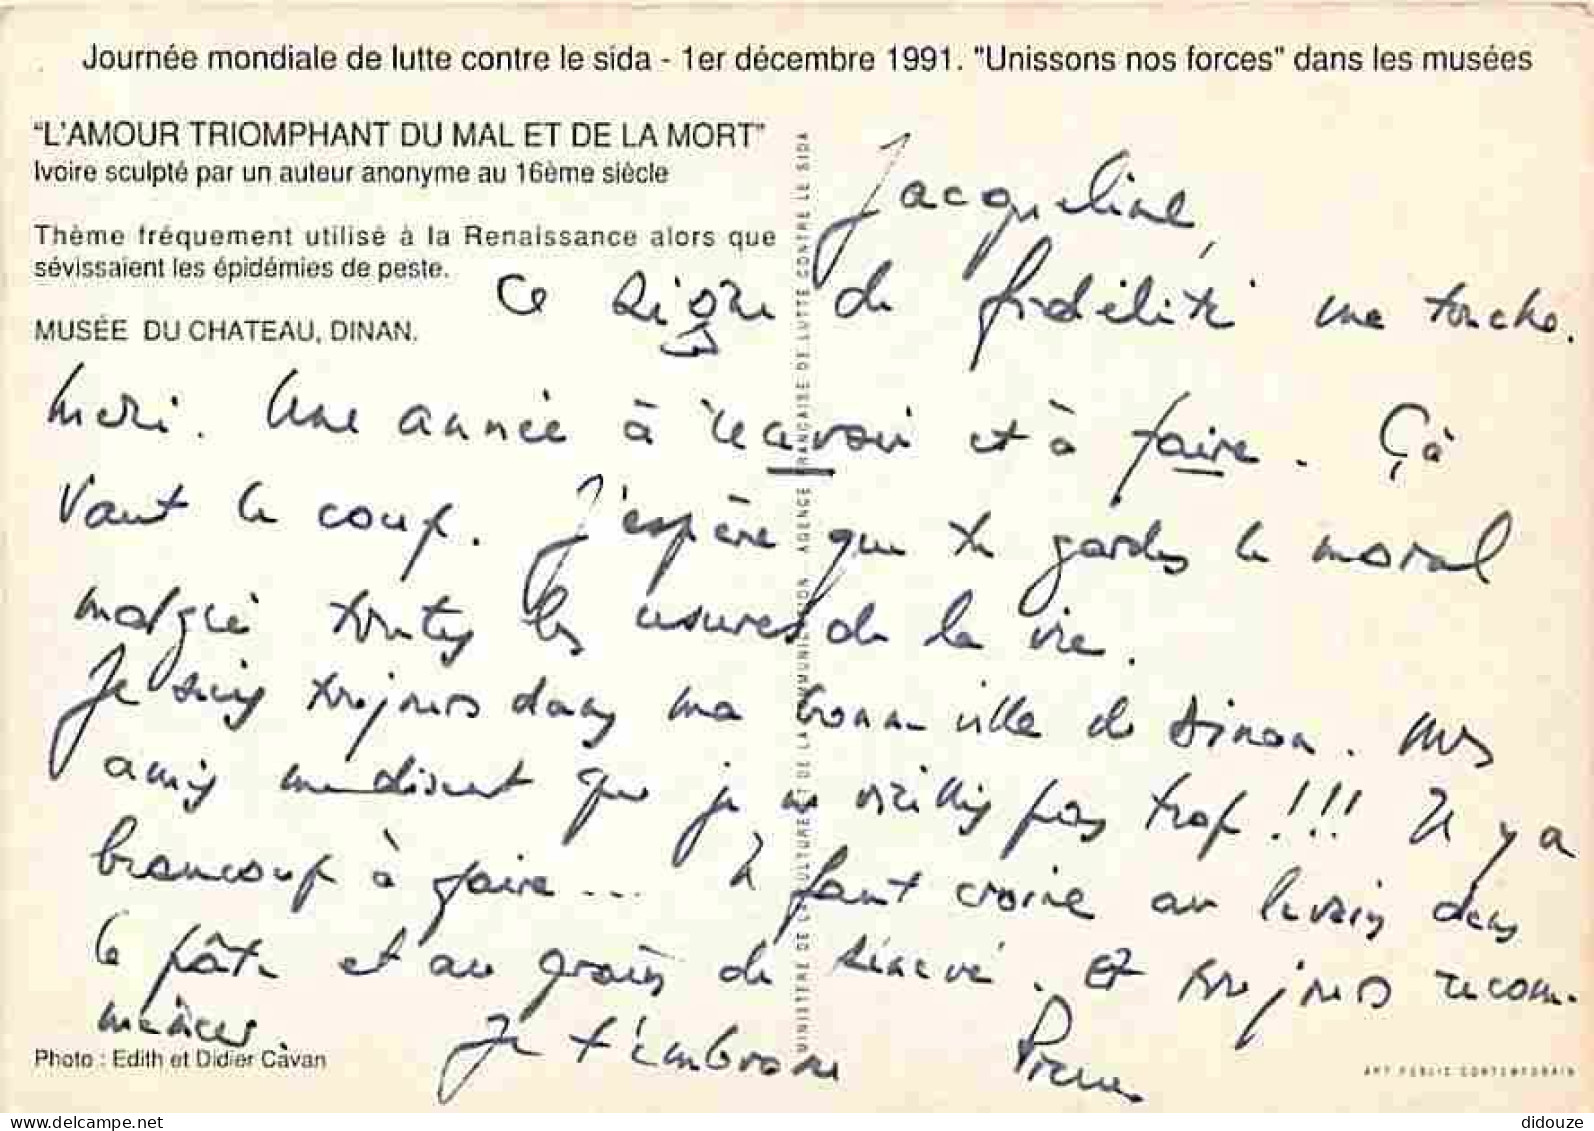 Journée mondiale de lutte contre le sida - 1er décembre 1991. "Unissons nos forces" dans les musées
"L'AMOUR TRIOMPHANT DU MAL ET DE LA MORT"
Ivoire sculpté par un auteur anonyme au 16ème siècle
Thème fréquement utilisé à la Renaissance alors que
sévissaient les épidémies de peste.
MUSÉE DU CHATEAU, DINAN.
Jacqueline,
Ce signe de fidélité me touche.
Merci. Une année à recevoir et à faire. Çà
vaut le coup. J'espère que tu gardes le moral
malgré toutes les usures de la vie.
Je suis toujours dans ma bonne ville de Dinan. Mes
amis me disent que je ne vieillis pas trop !!! Il y a
beaucoup à faire... Il faut croire au levain dans
la pâte et au grain de sénevé. Et toujours recom-
mencer. Je t'embrasse Pierre
Photo : Edith et Didier Cavan
MINISTERE DE LA CULTURE ET DE LA COMMUNICATION - AGENCE FRANCAISE DE LUTTE CONTRE LE SIDA
ART PUBLIC CONTEMPORAIN
didouze